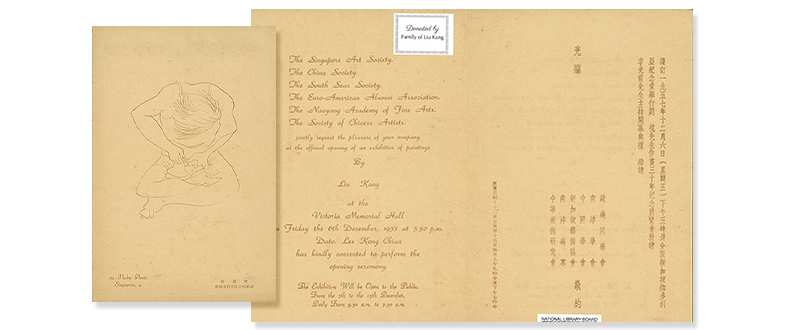 Singapore, 9
Donated by
Family of Liu Kang
The Singapore Art Society.
The China Society.
The South Seas Society.
The Euro-American Alumni Association.
The Nanyang Academy of Fine Arts.
The Society of Chinese Artists.
jointly request the pleasure of your company
at the official opening of an exhibition of paintings
By
Liu Kang
at the
Victoria Memorial Hall
Friday the 6th December, 1957 at 5.30 p.m.
Dato. Lee Kong Chian
has kindly consented to perform the
opening ceremony.
The Exhibition Will be Open to the Public.
From the 7th to the 15th December.
Daily From 9.30 a.m. to 5.30 p.m.
謹訂一九五七年十二月六日(星期五)下午五時卅分假新加坡維多利
亞紀念堂舉行劉抗先生作畫三十年紀念展覽會
李光前先生主持開幕典禮 恭請
光臨
歐美同學會
南洋學會
中國學會
新加坡藝術協會
南洋美專
中華美術研究會
敬約
NATIONAL LIBRARY BOARD